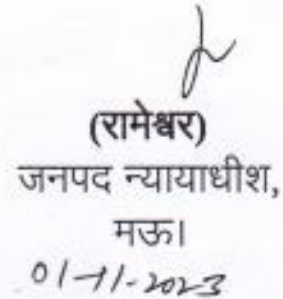 (रामेश्वर)
जनपद न्यायाधीश,
मऊ।
01-11-2023